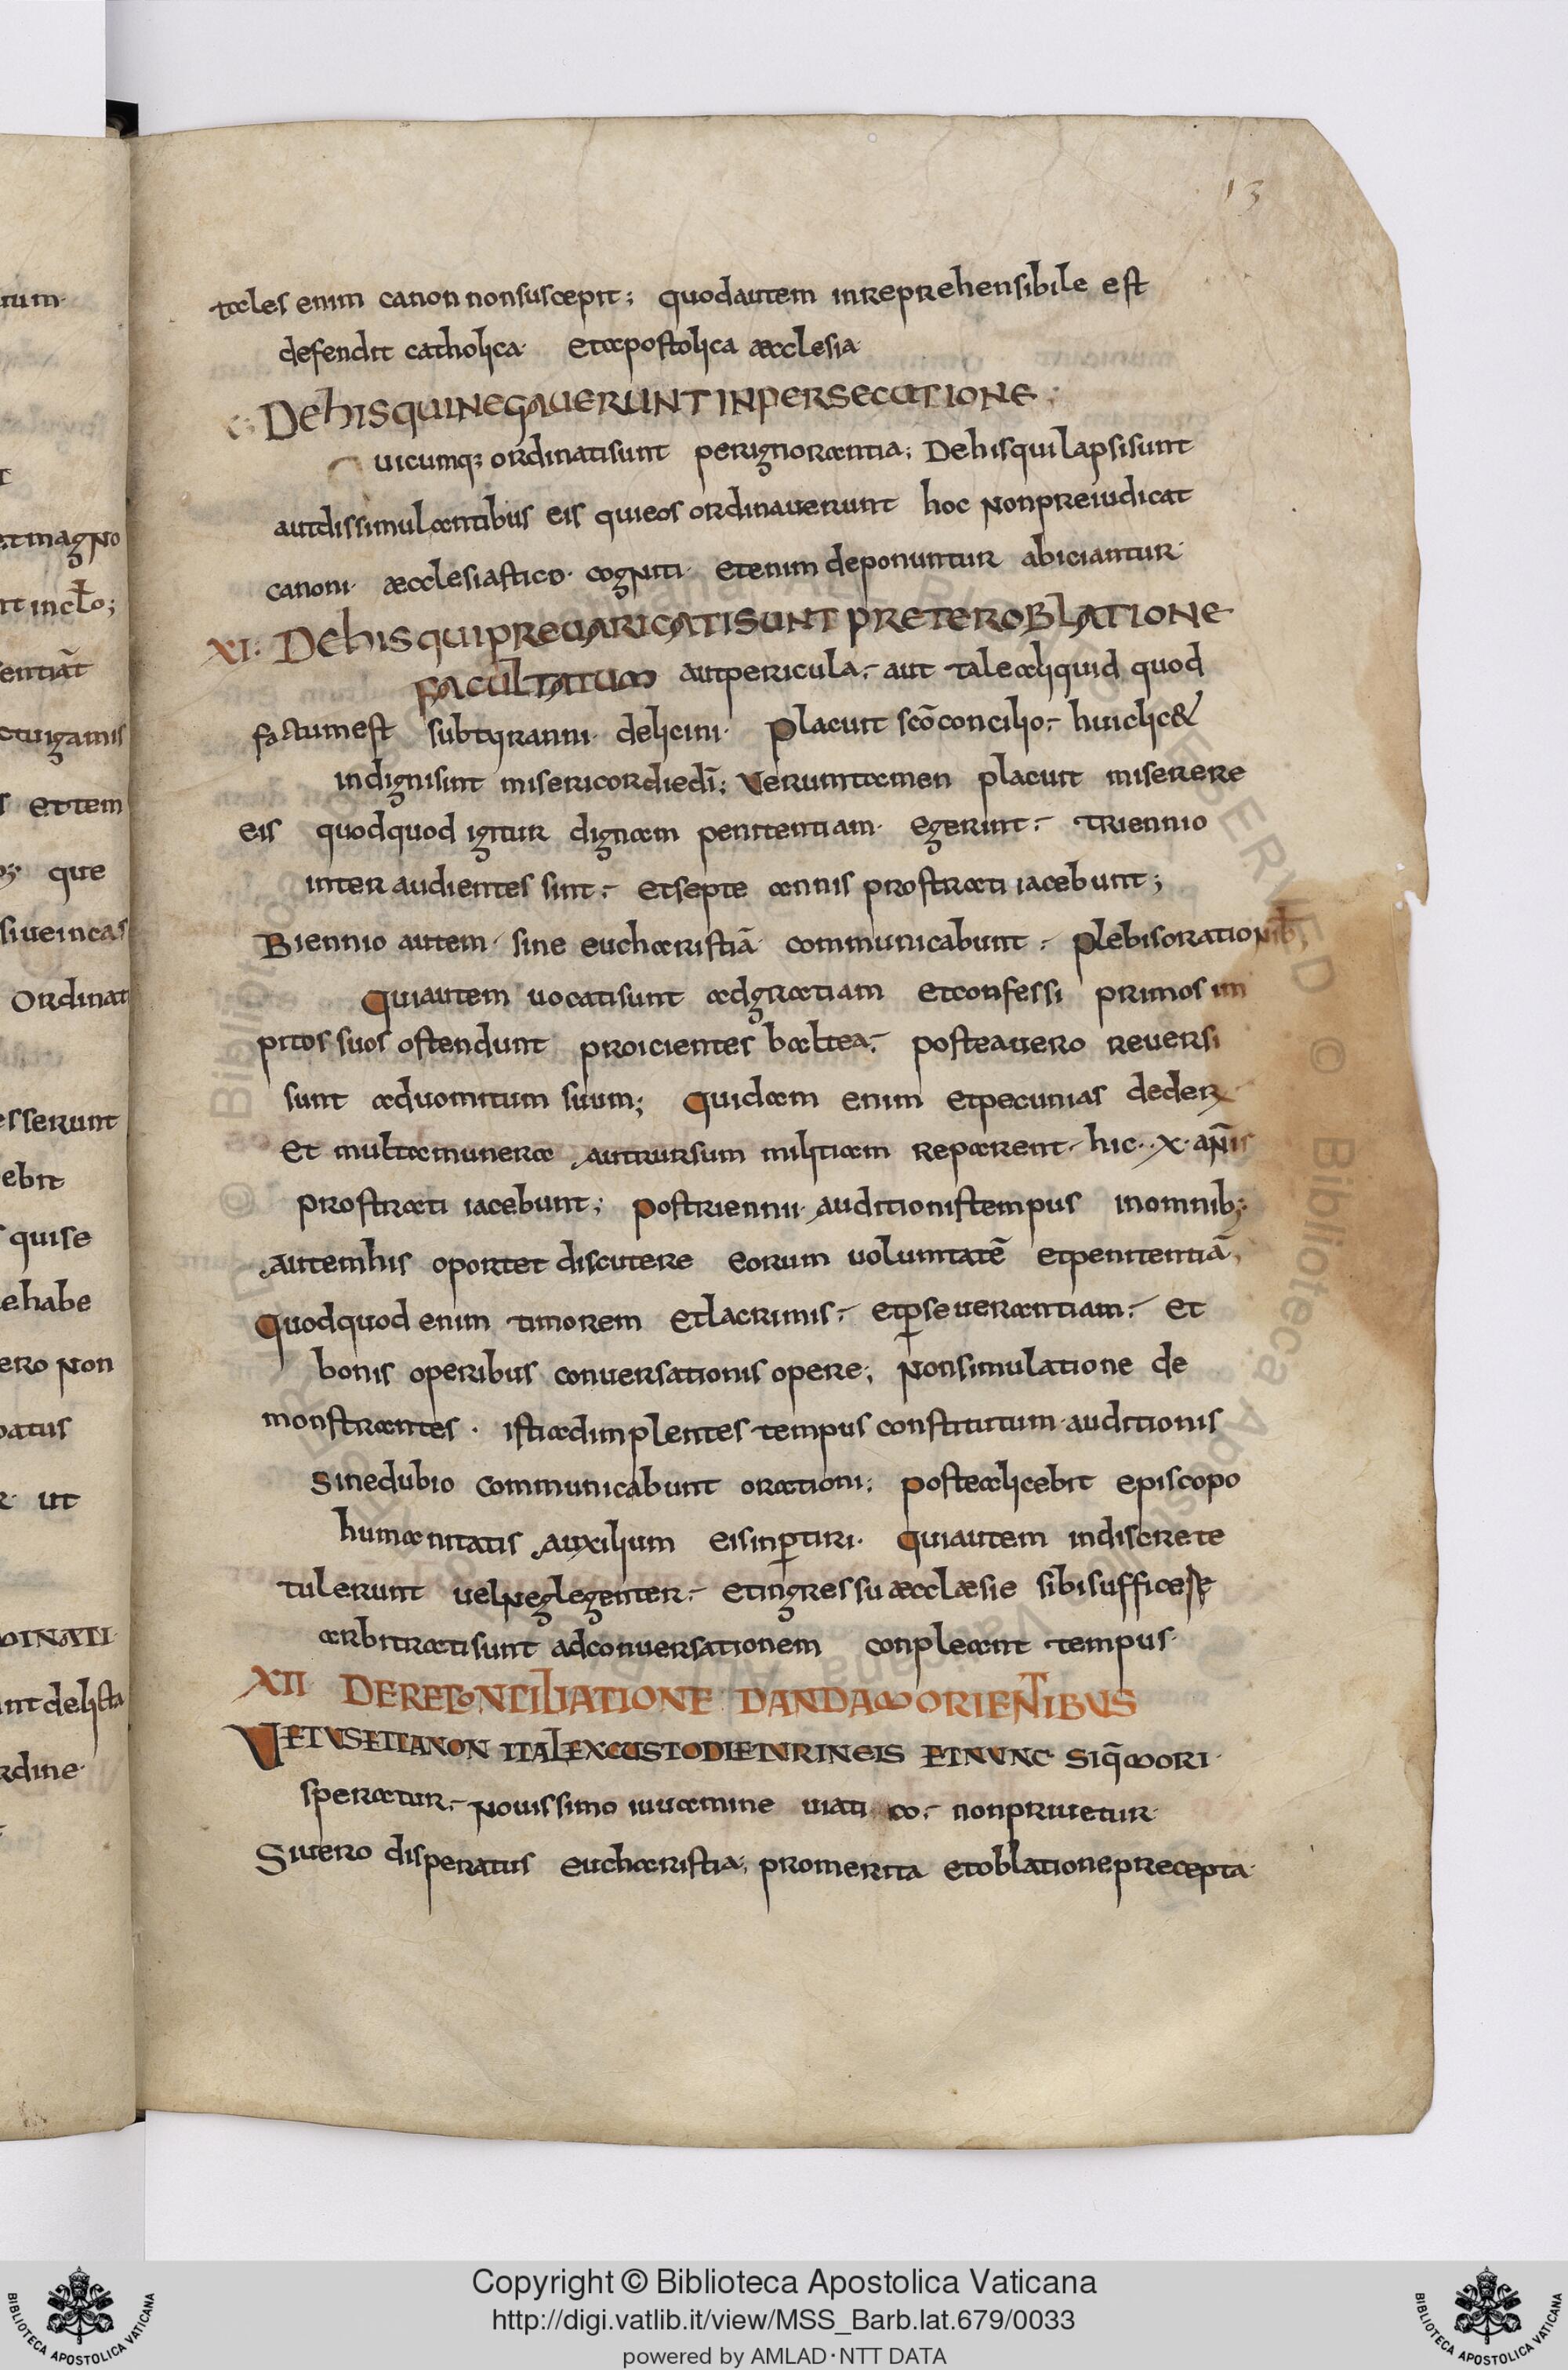 13
tales enim canon non suscepit; quod autem inreprehensibile est
defendit catholica· et apostolica æcclesia·
X: De his qui negaverunt in persecutione;
uicumq; ordinati sunt per ignorantia; De his qui lapsi sunt
aut dissimulantibus eis qui eos ordinauerunt hoc non preiudicat
canoni· æcclesiastico· cogniti· etenim deponuntur abiciantur·
XI: De his qui prevaricati sunt preter oblatione
facultatum aut pericula;- aut tale aliquid quod
factum est sub tyranni· delicini· Placuit scō concilio;- hui clic&
indigni sint misericordie dī; Verumtamen placuit miserere
eis quodquod igitur dignam penitentiam· egerint;- triennio
inter audientes sint;- et septe annis prostrati iacebunt;
Biennio autem· sine eucharistiā communicabunt;- plebis orationib;
Qui autem uocati sunt ad gratiam et confessi primos im
pitos suos ostendunt proicientes baltea;- postea uero reuersi
sunt ad uomitum suum; Quidam enim et pecunias deder
et multa munera aut rursum militiam reparent;- hic··X· annis
prostrati iacebunt; Post riennii· auditionis tempus in omnib;·
autem his oportet discutere eorum uoluntatē et penitentiā,
Quodquod enim timorem et lacrimis;- et p̄seuerantiam;- et
bonis operibus conuersationis opere; Non simulatione de
monstrantes· isti adimplentes tempus constitutum· auditionis
Sine dubio communicabunt orationi; postea licebit episcopo
humanitatis auxilium eis inp̄tiri· Qui autem indiscrete
tulerunt uel neglegenter;- et ingressu æcclæsie sibi sufficere
arbitrati sunt ad conuersationem conpleant tempus·
XII DE RECONCILIATIONE DANDA MORIENTIBUS
VETUS ETIANON ITA LEX CUSTODIETUR IN EIS ET NUNC siq̄ mori·
speratur;- Nouissimo iuuamine uiati co;- non priuetur·
Si uero disperatus eucharistia; promerita et oblatione precepta·
tum·
et magno
nt inclo;
entiāt
ctuigamis
s et tem
que
siue incas
Ordinat
esserunt
ebit
quise
e habe
ero non
patus
ut
DINATI
nt delicta
rdine·
Copyright © Biblioteca Apostolica Vaticana
http://digi.vatlib.it/view/MSS_Barb.lat.679/0033
powered by AMLAD·NTT DATA
BIBLIOTECA APOSTOLICA VATICANA
BIBLIOTECA APOSTOLICA VATICANA